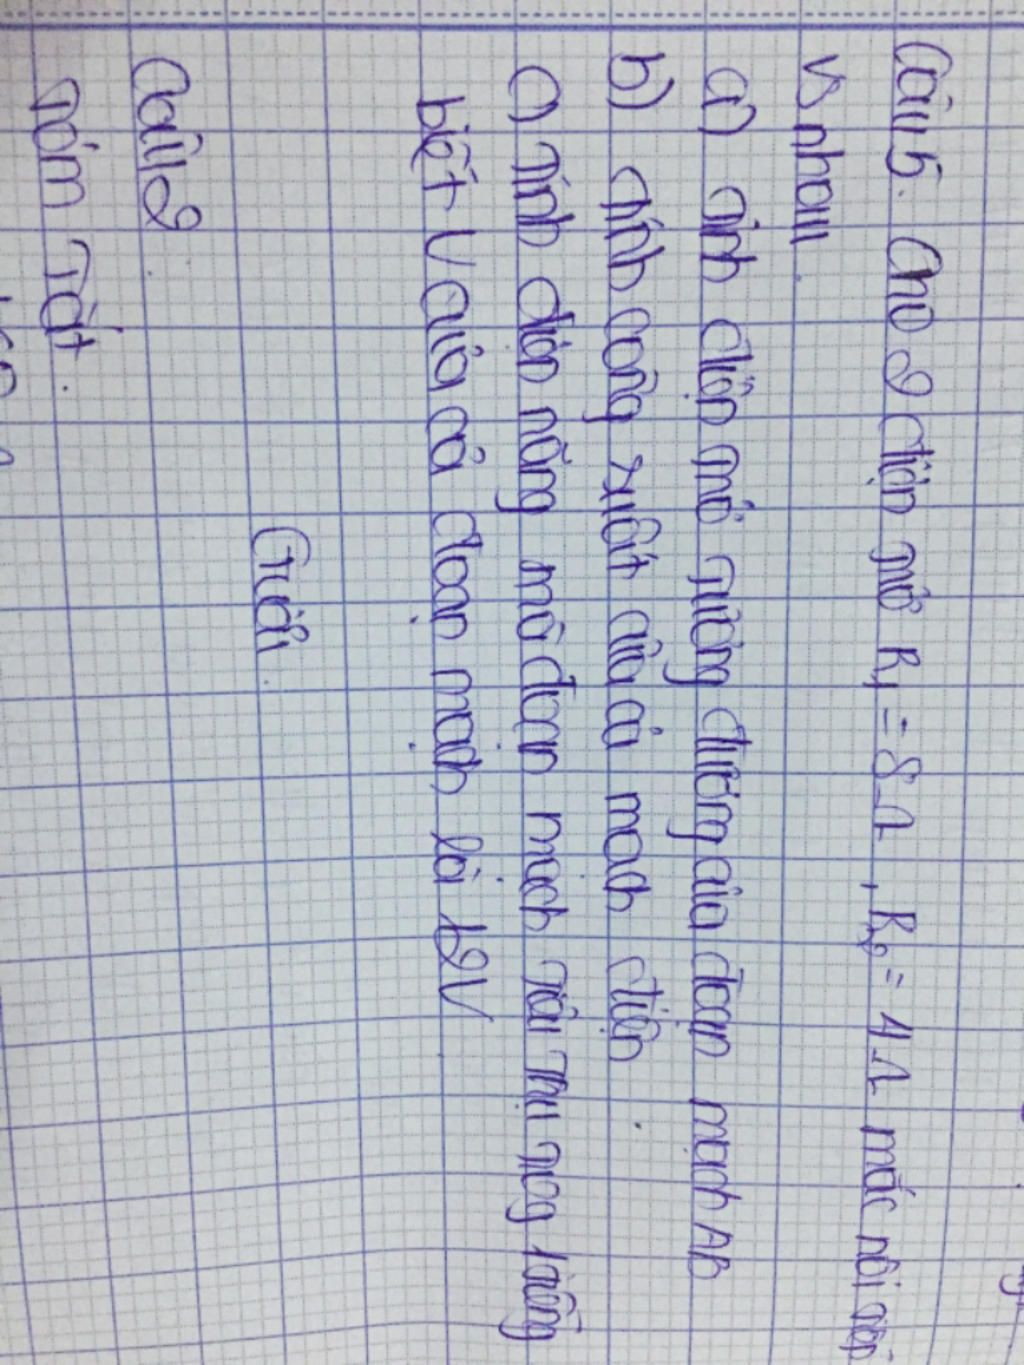 Câu 5. Cho 2 điện trở R₁ = 8Ω, R₂ = 4Ω mắc nối tiếp
vs nhau.
a) tính điện trở tương đương của đoạn mạch AB
b) tính công xuất của cả mạch điện.
c) Tính điện năng mà đoạn mạch tiêu thụ trog 1 tiếng
biết U của cả đoạn mạch là 12V
Giải.
Câu 2
Tóm Tắt.